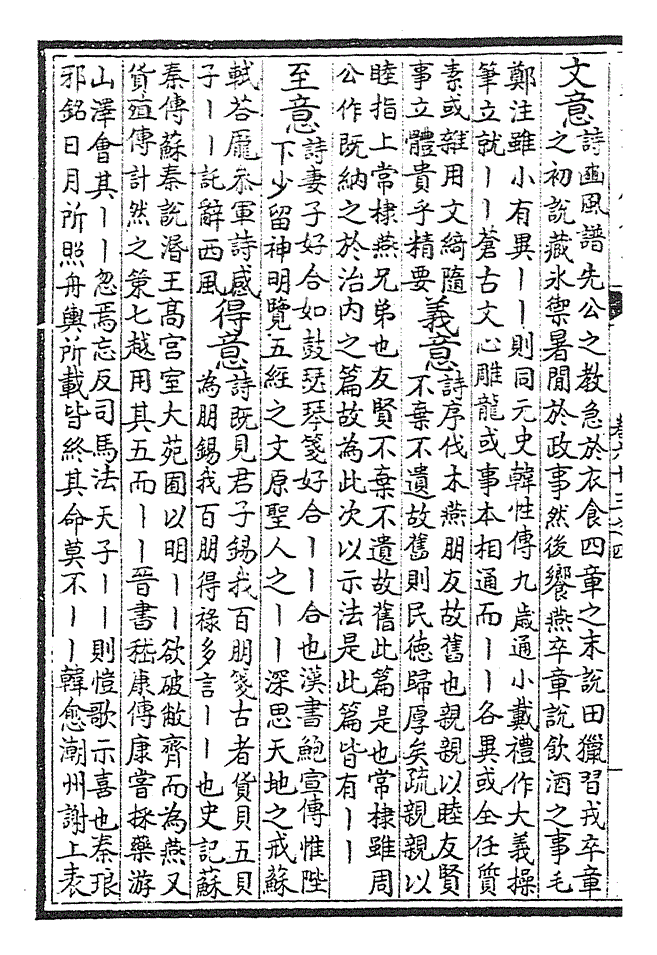 文意
詩豳風譜先公之教急於衣食四章之末說田獵習戎卒章
之初說藏氷禦暑閒於政事然後饗燕卒章說飲酒之事毛
鄭注雖小有異丨丨則同元史韓性傳九歲通小戴禮作大義操
筆立就丨丨蒼古文心雕龍或事本相通而丨丨各異或全任質
素或雜用文綺隨
事立體貴乎精要
義意
詩序伐木燕朋友故舊也親親以睦友賢
不棄不遺故舊則民德歸厚矣疏親親以
睦指上常棣燕兄弟也友賢不棄不遺故舊此篇是也常棣雖周
公作既納之於治內之篇故為此次以示法是此篇皆有丨丨
至意
詩妻子好合如鼓瑟琴箋好合丨丨合也漢書鮑宣傳惟陛
下少留神明覽五經之文原聖人之丨丨深思天地之戒蘇
軾荅龎叅軍詩感
子丨丨託辭西風
得意
詩既見君子錫我百朋箋古者貨貝五貝
為朋錫我百朋得祿多言丨丨也史記蘇
秦傳蘇秦說湣王高宮室大苑囿以明丨丨欲破敝齊而為燕又
貨殖傳計然之策七越用其五而丨丨晉書嵇康傳康嘗採藥游
山澤會其丨丨忽焉忘反司馬法天子丨丨則愷歌示喜也秦琅
邪銘日月所照舟輿所載皆終其命莫不丨丨韓愈潮州謝上表